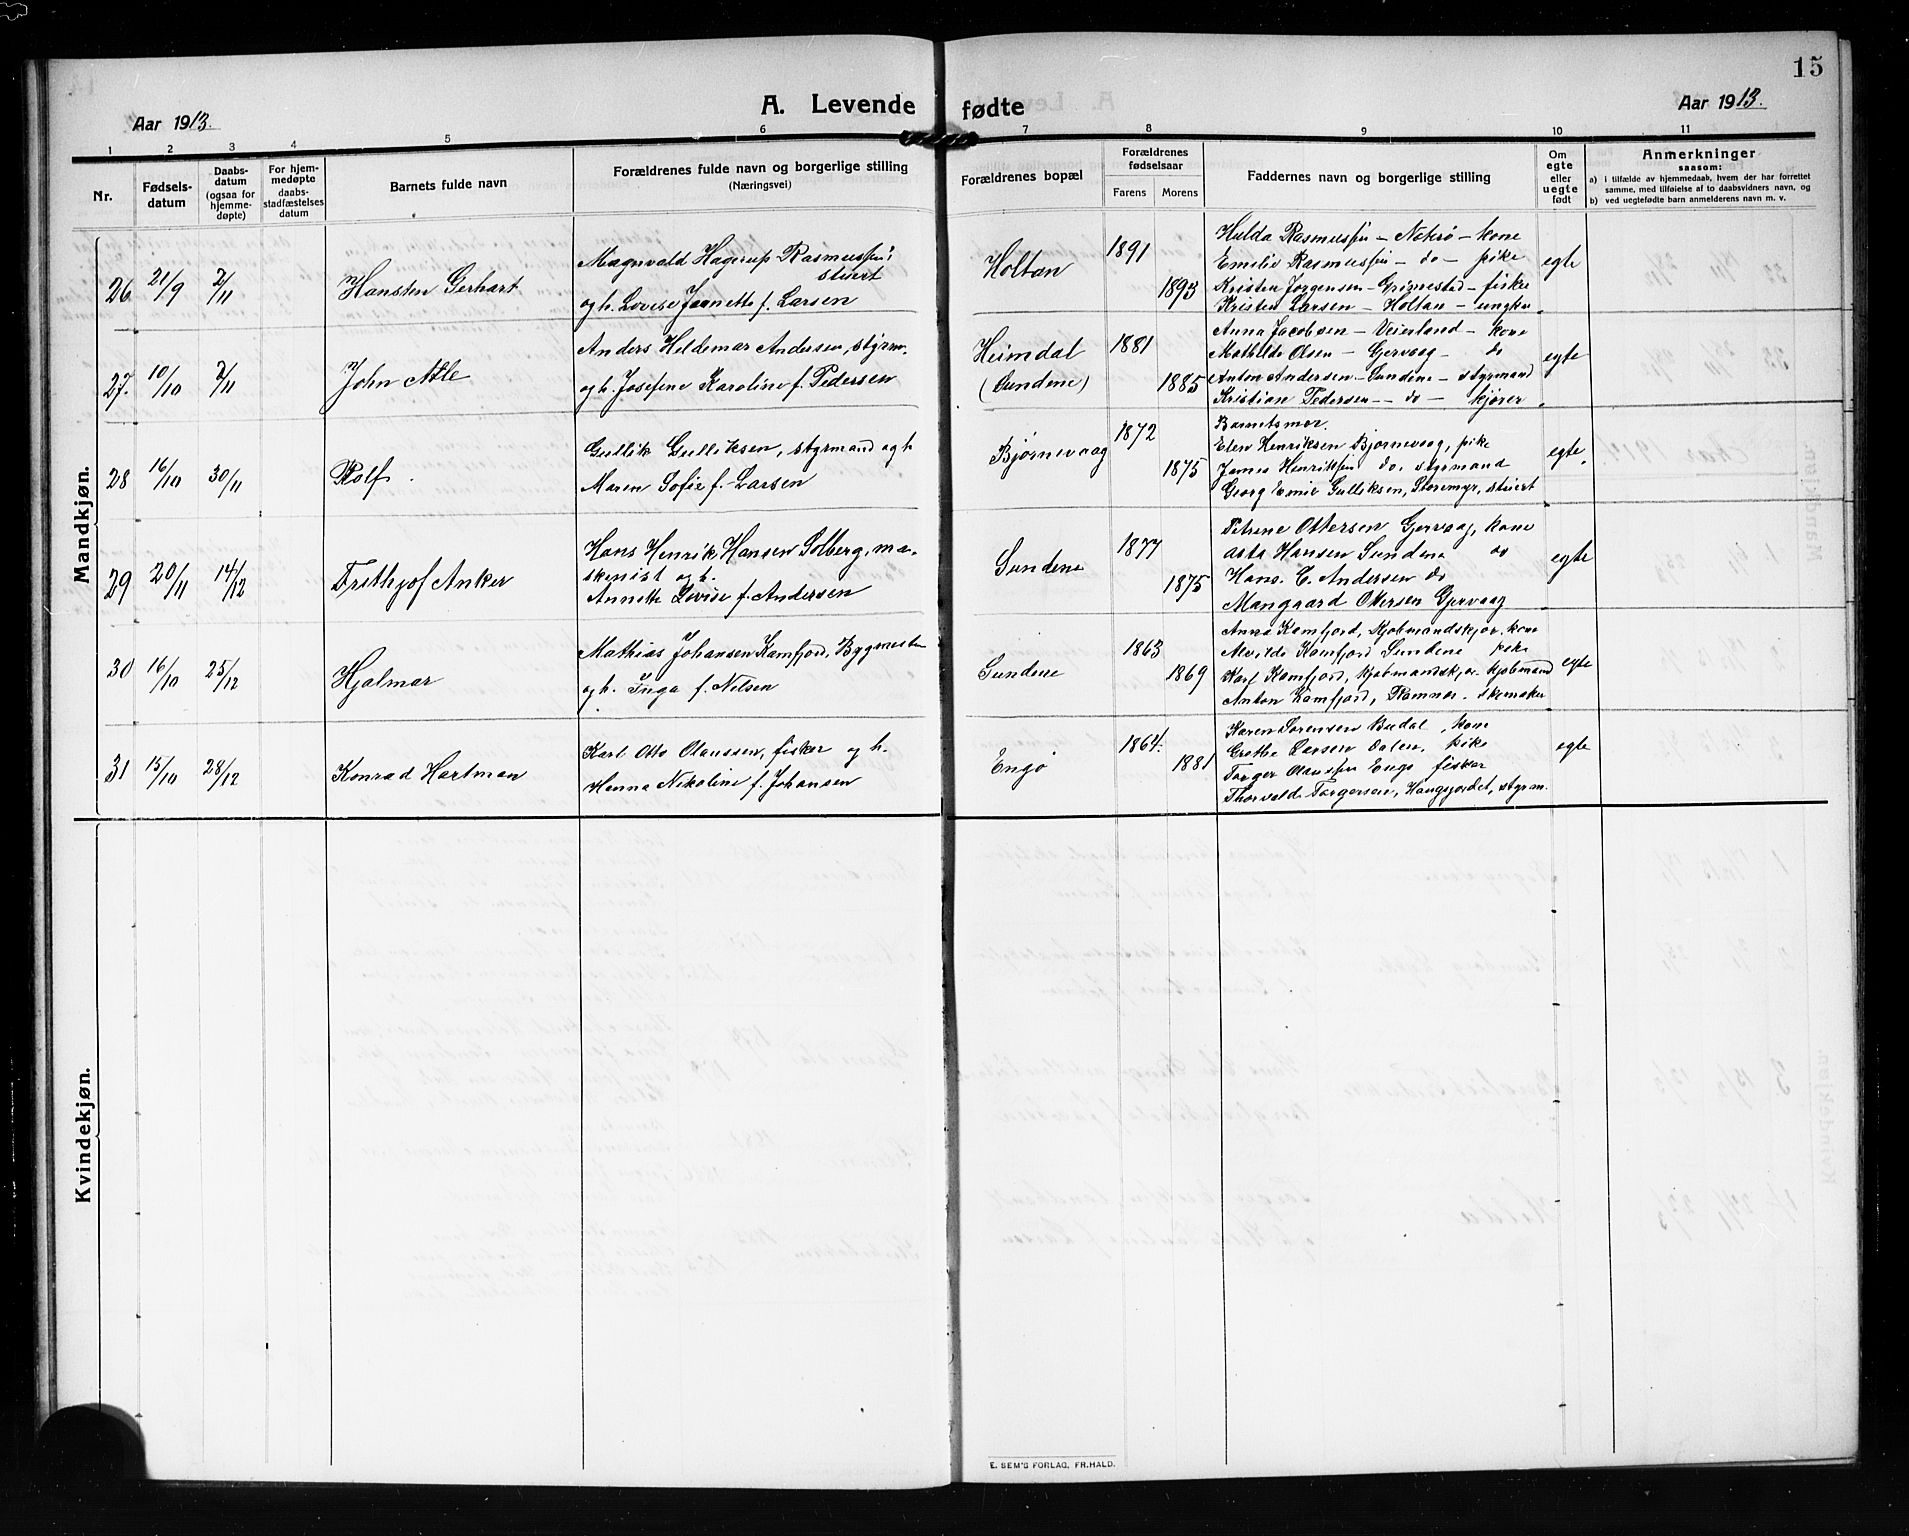 15
A. Levende fødte
Aar 1913.
Aar 1913.
1 2 3 4 5 6 7 8 9 10 11
Nr.
Fødsels-
datum
Daabs-
datum
(ogsaa for
hjemme-
døpte)
For hjem-
medøpte
daabs-
stadfæstelses
datum
Barnets fulde navn
Forældrenes fulde navn og borgerlige stilling
(Næringsvei)
Forældrenes bopæl
Forældrenes
fødselsaar
Farens Morens
Faddernes navn og borgerlige stilling
Om
egte
eller
uegte
født
Anmerkninger
saasom:
a) i tilfælde av hjemmedaab, hvem der har forrettet
samme, med tilføielse af to daabsvidners navn, og
b) ved uegtefødte barn anmelderens navn m. v.
Mandkjøn.
26 21/9 2/11 Hansten Gerhart
Magnvald Hagerup Rasmussen,
stuert
og h. Lovise Jeanette f. Larsen
Holtan 1891 1893
Hulda Rasmussen - Nøterø - kone
Emilie Rasmussen - do - pike
Kristen Jørgensen - Grimestad - fisker
Kristen Larsen - Holtan - ungkar
egte
27. 10/10 2/11 John Atle
Anders Hildemar Andersen, styrm.
og h. Josefine Karoline f. Pedersen
Heimdal
(Sundene)
1881 1885
Anna Jacobsen - Veierland - kone
Mathilde Olsen - Gjervaag - do
Anton Andersen - Sundene - styrmand
Kristian Pedersen - do - kjører
egte
28 16/10 30/11 Rolf.
Gullik Gulliksen, styrmand og h.
Maren Sofie f. Larsen
Bjørnevaag 1872 1875
Barnets mor.
Elen Henriksen Bjørnevaag, pike
James Henriksen do, styrmand
Georg Emil Gulliksen, Storemyr, stuert
egte.
29 20/11 14/12 Frithjof Anker
Hans Henrik Hansen Solberg, ma-
skinist og h.
Annette Lovise f. Andersen
Sundene 1877 1875
Petrine Ottersen Gjervaag, kone
Asta Hansen Sundene do
Hans C. Andersen do
Mangaard Ottersen Gjervaag
egte
30 16/10 25/12 Hjalmar
Mathias Johansen Kamfjord, Bygmester
og h. Inga f. Nilsen
Sundene 1863 1869
Anna Kamfjord, Kjøbmandskjær, kone
Alvilde Kamfjord Sundene pike
Karl Kamfjord, Kjøbmandskjær. kjøbmand
Anton Kamfjord, Ramnæs. skomaker
egte
31 15/10 28/12 Konrad Hartman
Karl Otto Olaussen, fisker og h.
Hanna Nikoline f. Johansen
Engø 1864. 1881
Karen Sørensen Budal, kone
Grethe Larsen Dalen, pike
Torger Olaussen Engø fisker
Thorvald Torgersen, Haugjordet, styrm.
egte
Kvindekjøn.
E. SEM'S FORLAG, FR.HALD.